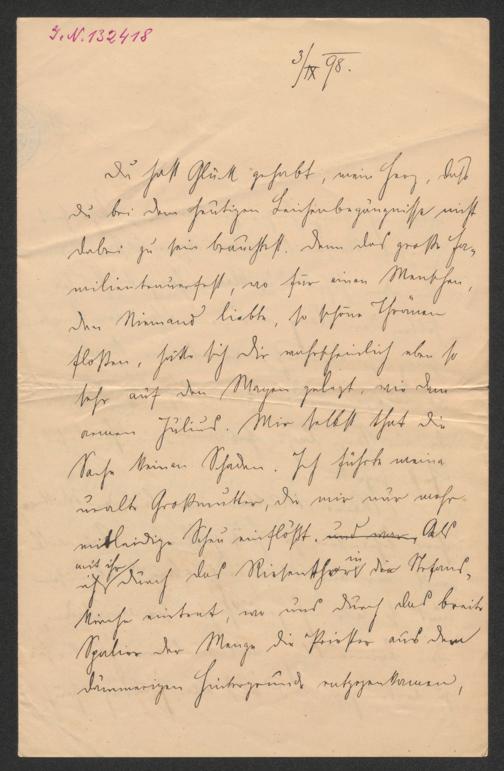 I. N. 132418
3/IX 98.
Du hast Glück gehabt, mein Herz, daß
du bei dem heutigen Leichenbegängnisse nicht
dabei zu sein brauchtest. Denn das große Fa-
milientrauerfest, wo für einen Menschen,
den Niemand liebte, so schöne Thränen
floßen, hätte sich dir wahrscheinlich eben so
sehr auf den Magen gelegt, wie dem
armen Julius. Mir selbst that die
Sache keinen Schaden. Ich führte meine
uralte Großmutter, die mir nur mehr
mitleidige Scheu einflößt, und war. Als
mit ihr
ich durch das Riesenthor in die Stefans-
kirche eintrat, wo uns durch das breite
Spalier der Menge die Priester aus dem
dämmerigen Hintergrunde entgegenkamen,